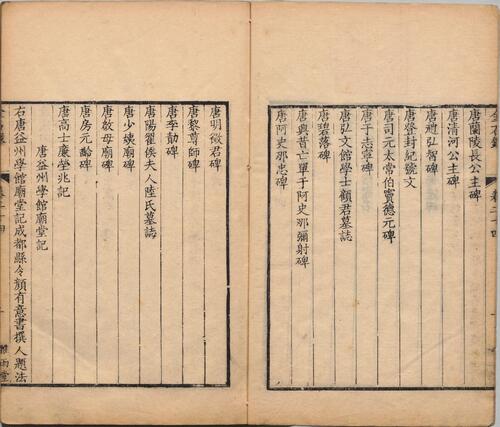 金石錄 卷二十四
唐蘭陵長公主碑
唐清河公主碑
唐禮弘智碑
唐登封紀號文
唐司元太常伯竇德元碑
唐于志寧碑
唐弘文館學士顧君墓誌
唐碧落碑
唐興昔亡單于阿史那彌射碑
唐阿史那忠碑
唐明徵君碑
唐黎尊師碑
唐李勣碑
唐陽翟侯夫人陸氏墓誌
唐少姨廟碑
唐啟母廟碑
唐房元齡碑
唐高士廉塋兆記
唐益州學館廟堂記
右唐益州學館廟堂記成都縣令顏有意書撰人題法
雅雨堂